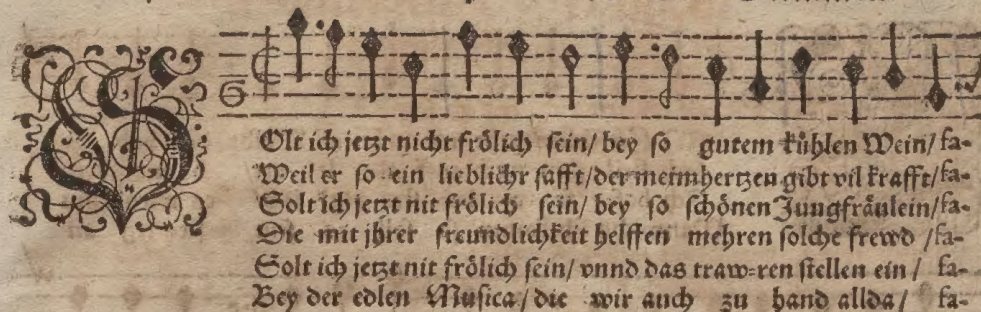 SOlt ich jetzt nicht frölich sein/ bey so gutem kühlen Wein/ fa-
Weil er so ein lieblichr safft/ der meimhertzen gibt vil krafft/ fa-
Solt ich jetzt nit frölich sein/ bey so schönen Jungfräulein/ fa-
Die mit jhrer freundlichkeit helffen mehren solche frewd /fa-
Solt ich jetzt nit frölich sein/ vnnd das traw-ren stellen ein / fa-
Bey der edlen Musica/ die wir auch zu hand allda/ fa-